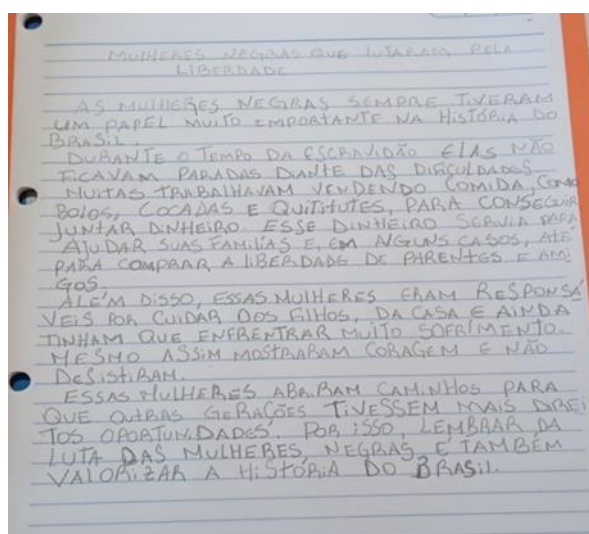 MULHERES NEGRAS QUE LUTARAM PELA
LIBERDADE
AS MULHERES NEGRAS SEMPRE TIVERAM
UM PAPEL MUITO IMPORTANTE NA HISTÓRIA DO
BRASIL.
DURANTE O TEMPO DA ESCRAVIDÃO ELAS NÃO
FICAVAM PARADAS DIANTE DAS DIFICULDADES.
MUITAS TRABALHAVAM VENDENDO COMIDA, COMO
BOLOS, COCADAS E QUITITUTES, PARA CONSEGUIR
JUNTAR DINHEIRO. ESSE DINHEIRO SERVIA PARA
AJUDAR SUAS FAMÍLIAS E, EM ALGUNS CASOS, ATÉ
PARA COMPRAR A LIBERDADE DE PARENTES E AMI
GOS.
ALÉM DISSO, ESSAS MULHERES ERAM RESPONSÁ
VEIS POR CUIDAR DOS FILHOS, DA CASA E AINDA
TINHAM QUE ENFRENTRAR MUITO SOFRIMENTO.
MESMO ASSIM MOSTRARAM CORAGEM E NÃO
DESISTIRAM.
ESSAS MULHERES ABRIRAM CAMINHOS PARA
QUE OUTRAS GERAÇÕES TIVESSEM MAIS DIREI
TOS OPORTUNIDADES. POR ISSO, LEMBRAR DA
LUTA DAS MULHERES, NEGRAS, É TAMBÉM
VALORIZAR A HISTÓRIA DO BRASIL.